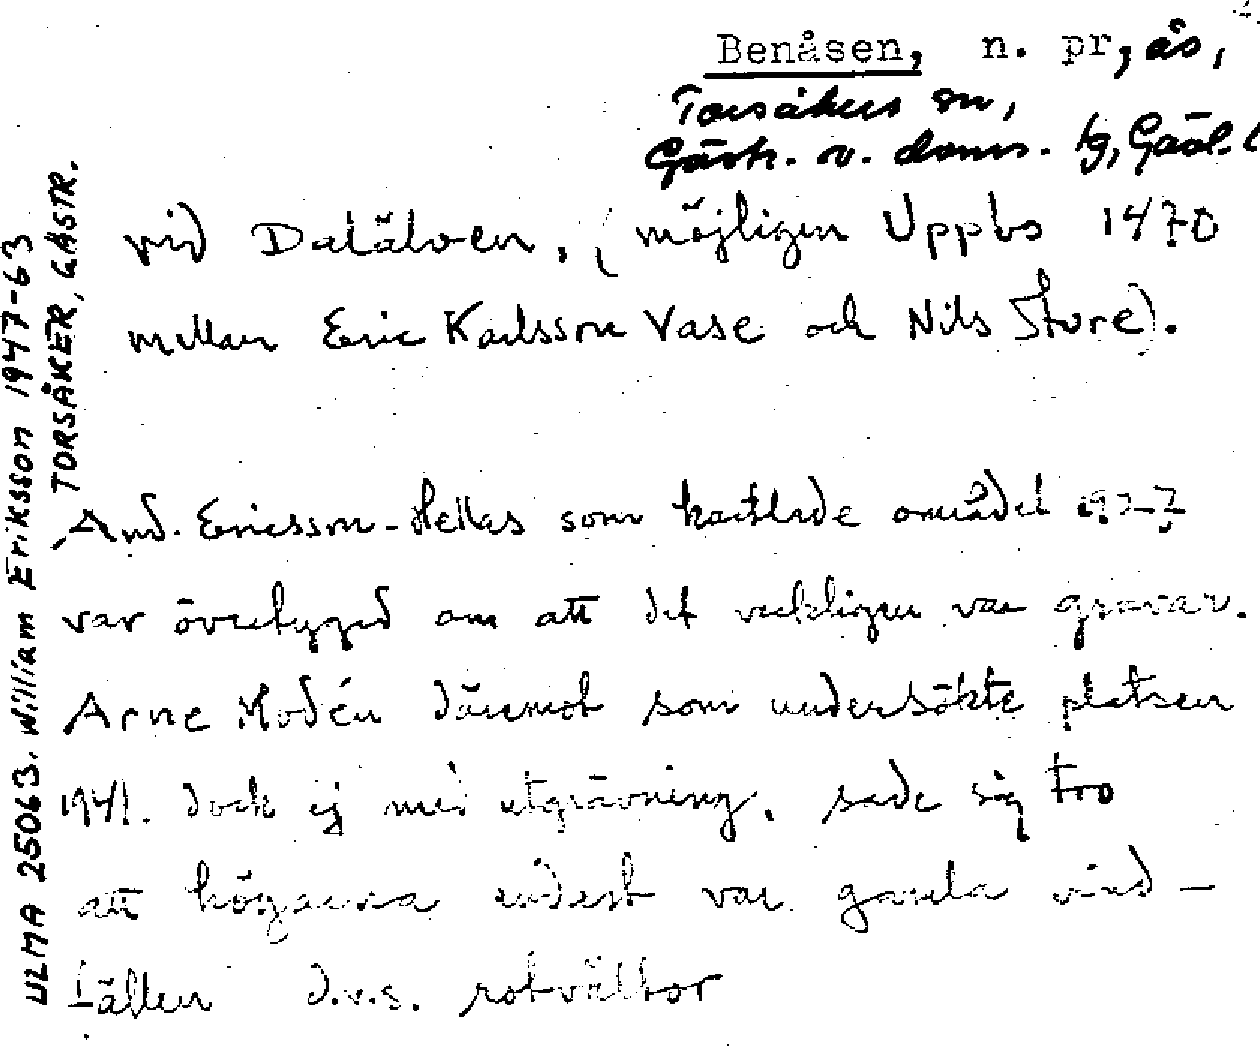 2.
Benåsen, n. pr, ås,
Torsåkers sn,
Gästr. v. doms. tg, Gävl. l
vid Dalälven. (möjligen Uppbs 1470
mellan Eric Karlsson Vase och Nils Sture).
And. Ericsson-Hellas som kartlade området 192-7
var övertygad om att det verkligen var gravar.
Arne Modén däremot som undersökte platsen
1941. dock ej med utgrävning, sade sig tro
att högarna endast var gamla vind-
fällen d.v.s. rotvältor
ULMA 25063. William Eriksson 1947-63
TORSÅKER, GÄSTR.